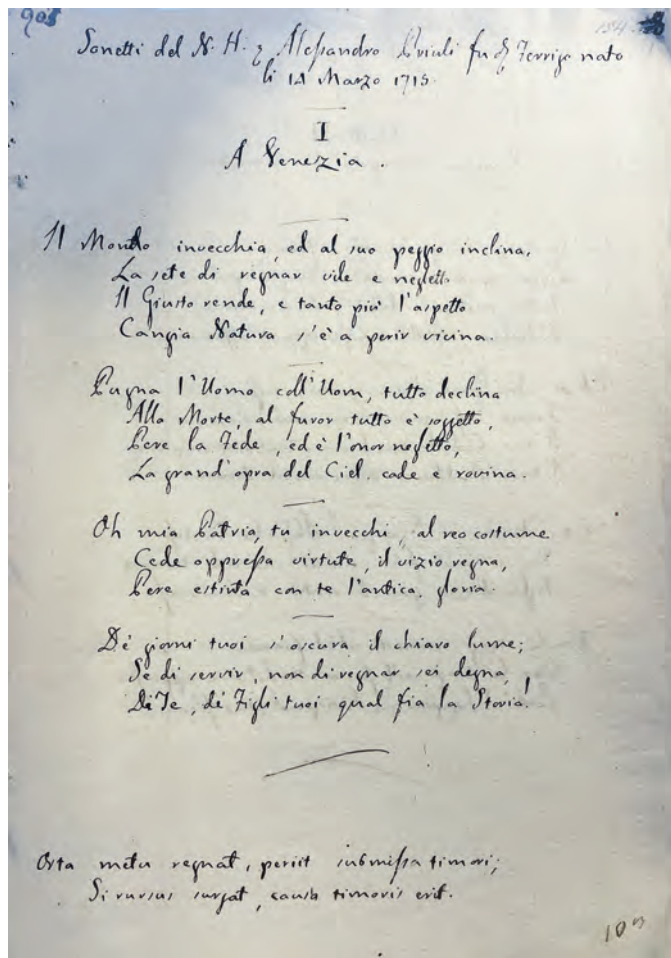 903
184
Sonetti del N. H. Alessandro Priuli fu Ferrigo nato
li 14 Marzo 1713.
I
A Venezia.
Il Mondo invecchia, ed al suo peggio inclina,
La sete di regnar vile e negletto
Il Giusto rende, e tanto più l'aspetto
Cangia Natura s'è a perir vicina.
Pugna l'Uomo coll'Uom, tutto declina
Alla Morte, al furor tutto è soggetto,
Pere la Fede, ed è l'onor negletto,
La grand'opra del Ciel, cade e rovina.
Oh mia Patria, tu invecchi, al reo costume
Cede oppressa virtute, il vizio regna,
Pere estinta con te l'antica gloria.
De' giorni tuoi s'oscura il chiaro lume;
Se di servir, non di regnar sei degna,
Di Te, de' Figli tuoi qual fia la Storia!
Orta metu regnat, periit submissa timori;
Si rursus surgat, causa timoris erit.